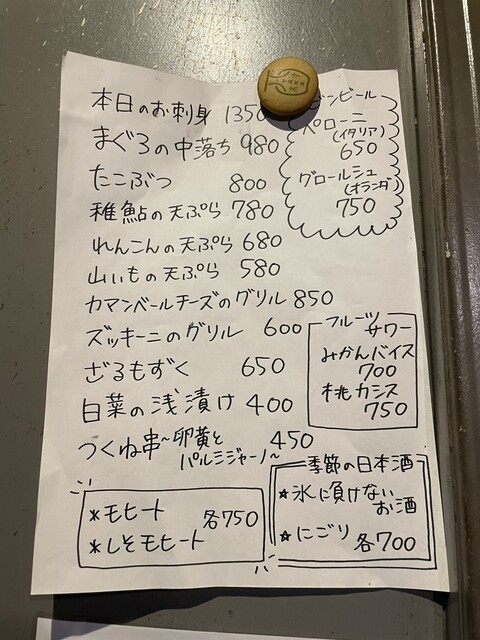 本日のお刺身 1350
まぐろの中落ち 980
たこぶつ 800
稚鮎の天ぷら 780
れんこんの天ぷら 680
山いもの天ぷら 580
カマンベールチーズのグリル 850
ズッキーニのグリル 600
ざるもずく 650
白菜の浅漬け 400
つくね串~卵黄と
パルミジャーノ~ 450
*モヒート
*しそモヒート
各750
ビンビール
ペローニ
(イタリア)
650
グロールシュ
(オランダ)
750
フルーツ
サワー
みかんバイス
700
桃カシス
750
季節の日本酒
★氷に負けない
お酒
★にごり 各700